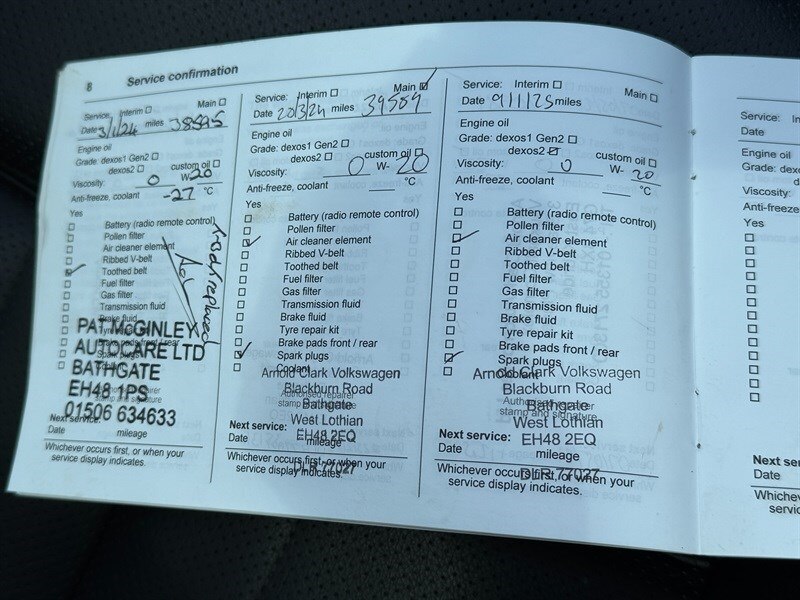 8 Service confirmation
Service: Interim ☐ Main ☐
Date 3/1/24 miles 38595
Engine oil
Grade: dexos1 Gen2 ☐
dexos2 ☐ custom oil ☐
Viscosity: 0 W-20
Anti-freeze, coolant -27 °C
Yes
☐ Battery (radio remote control)
☐ Pollen filter
☐ Air cleaner element
☐ Ribbed V-belt
☑ Toothed belt
☐ Fuel filter
☐ Gas filter
☐ Transmission fluid
☐ Brake fluid
☐ Tyre repair kit
☐ Brake pads front / rear
☐ Spark plugs
replaced
PAT McGINLEY
AUTOCARE LTD
BATHGATE
EH48 1PS
01506 634633
Authorised repairer
stamp and signature
Next service:
Date mileage
Whichever occurs first, or when your
service display indicates.
Service: Interim ☐ Main ☑
Date 20/3/24 miles 39509
Engine oil
Grade: dexos1 Gen2 ☐
dexos2 ☐ custom oil ☐
Viscosity: 0 W- 20
Anti-freeze, coolant °C
Yes
☐ Battery (radio remote control)
☐ Pollen filter
☑ Air cleaner element
☐ Ribbed V-belt
☐ Toothed belt
☐ Fuel filter
☐ Gas filter
☐ Transmission fluid
☐ Brake fluid
☐ Tyre repair kit
☐ Brake pads front / rear
☑ Spark plugs
☐ Coolant
Arnold Clark Volkswagen
Blackburn Road
Bathgate
West Lothian
EH48 2EQ
DLR 77027
Authorised repairer
stamp and signature
Next service:
Date mileage
Whichever occurs first, or when your
service display indicates.
Service: Interim ☐ Main ☐
Date 9/1/25 miles
Engine oil
Grade: dexos1 Gen2 ☐
dexos2 ☑ custom oil ☐
Viscosity: 0 W- 20
Anti-freeze, coolant °C
Yes
☐ Battery (radio remote control)
☐ Pollen filter
☑ Air cleaner element
☐ Ribbed V-belt
☐ Toothed belt
☐ Fuel filter
☐ Gas filter
☐ Transmission fluid
☐ Brake fluid
☐ Tyre repair kit
☐ Brake pads front / rear
☑ Spark plugs
☐ Coolant
Arnold Clark Volkswagen
Blackburn Road
Bathgate
West Lothian
EH48 2EQ
DLR 77027
Authorised repairer
stamp and signature
Next service:
Date mileage
Whichever occurs first, or when your
service display indicates.
Service:
Date
Engine oil
Grade:
Viscosity:
Anti-freeze
Yes
Next
Date